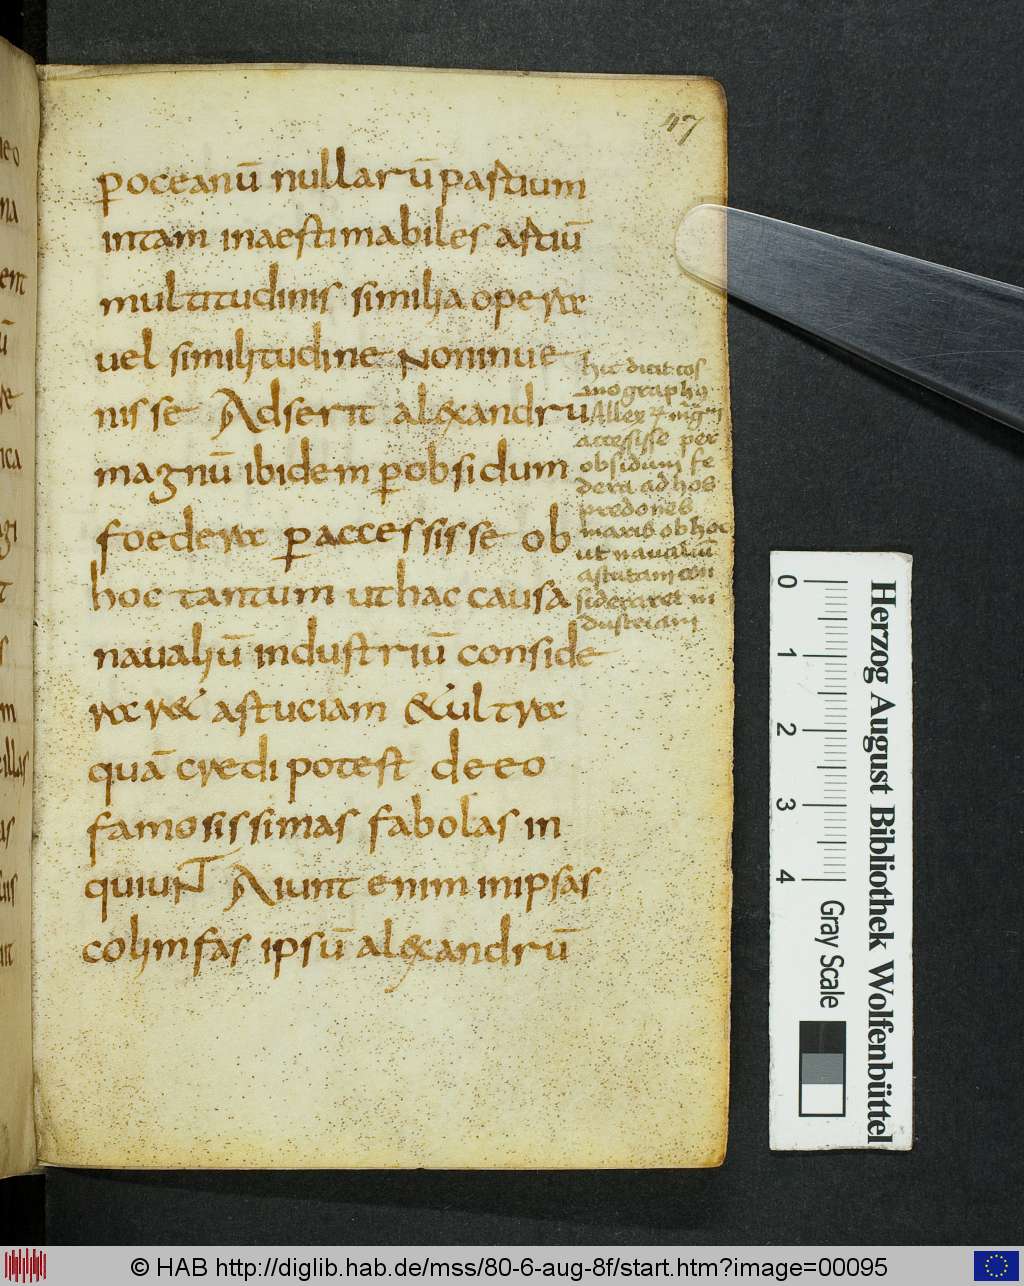 47
p oceanū nullarū partium
intam inaestimabiles astiū
multitudinis similia operæ
uel similitudine Noninue
nisse Adserit alexandru
magnū ibidem pobsidum
foederæ paccessisse ob
hoc tantum ut hac causa
naualiū industriū conside
ræret astuciam & ultræ
quā credi potest de eo
famosissimas fabolas in
quiuNT Aiunt enim inipsas
colimfas ipsū alexandrū
hic dicit cos
mographꝰ
Allex
accessisse per
obsidum fe
dera ad hos
predones
maris ob hoc
ut naualiū
astutam con
sideraret in
dustriam
0 1 2 3 4
Gray Scale
Herzog August Bibliothek Wolfenbüttel
© HAB http://diglib.hab.de/mss/80-6-aug-8f/start.htm?image=00095